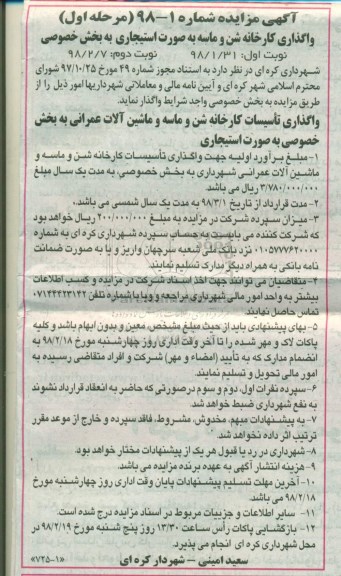 آگهی مزایده شماره ۱-۹۸ (مرحله اول)
واگذاری کارخانه شن و ماسه به صورت استیجاری به بخش خصوصی
نوبت اول: ۹۸/۱/۳۱ نوبت دوم: ۹۸/۲/۷
شهرداری کره ای در نظر دارد به استناد مجوز شماره ۴۹ مورخ ۹۷/۱۰/۲۵ شورای
محترم اسلامی شهر کره ای و آیین نامه مالی و معاملاتی شهرداریها امور ذیل را از
طریق مزایده به بخش خصوصی واجد شرایط واگذار نماید.
واگذاری تأسیسات کارخانه شن و ماسه و ماشین آلات عمرانی به بخش
خصوصی به صورت استیجاری
۱- مبلغ برآورد اولیه جهت واگذاری تأسیسات کارخانه شن و ماسه و
ماشین آلات عمرانی شهرداری به بخش خصوصی، به مدت یک سال مبلغ
۳/۷۸۰/۰۰۰/۰۰۰ ریال می باشد.
۲- مدت قرارداد از تاریخ ۹۸/۳/۱ به مدت یک سال شمسی می باشد.
۳- میزان سپرده شرکت در مزایده به مبلغ ۲۰۰/۰۰۰/۰۰۰ ریال خواهد بود
که شرکت کننده می بایست به حساب سپرده شهرداری کره ای به شماره
۰۱۰۵۷۷۷۶۲۰۰۰۰ نزد بانک ملی شعبه سرچهان واریز و یا به صورت ضمانت
نامه بانکی به همراه دیگر مدارک تسلیم نمایند.
۴- متقاضیان می توانند جهت اخذ اسناد شرکت در مزایده و کسب اطلاعات
بیشتر به واحد امور مالی شهرداری مراجعه و و یا با شماره تلفن ۰۷۱۴۴۴۲۳۱۴۲
تماس حاصل نمایند.
۵- بهای پیشنهادی باید از حیث مبلغ مشخص، معین و بدون ابهام باشد و کلیه
پاکات لاک و مهر شده را تا آخر وقت اداری روز چهارشنبه مورخ ۹۸/۲/۱۸ به
انضمام مدارک که به تأیید (امضاء و مهر) شرکت و افراد متقاضی رسیده به
امور مالی تحویل و تسلیم نمایند.
۶- سپرده نفرات اول، دوم و سوم درصورتی که حاضر به انعقاد قرارداد نشوند
به نفع شهرداری ضبط خواهد شد.
۷- به پیشنهادات مبهم، مخدوش، مشروط، فاقد سپرده و خارج از موعد مقرر
ترتیب اثر داده نخواهد شد.
۸- شهرداری در رد یا قبول هر یک از پیشنهادات مختار خواهد بود.
۹- هزینه انتشار آگهی به عهده برنده مزایده می باشد.
۱۰- آخرین مهلت تسلیم پیشنهادات پایان وقت اداری روز چهارشنبه مورخ
۹۸/۲/۱۸ می باشد.
۱۱- سایر اطلاعات و جزییات مربوط در اسناد مزایده درج شده است.
۱۲- بازگشایی پاکات رأس ساعت ۱۳/۳۰ روز پنج شنبه مورخ ۹۸/۲/۱۹ در
محل شهرداری کره ای انجام می پذیرد.
سعید امینی - شهردار کره ای
«۷۲۵-۱»